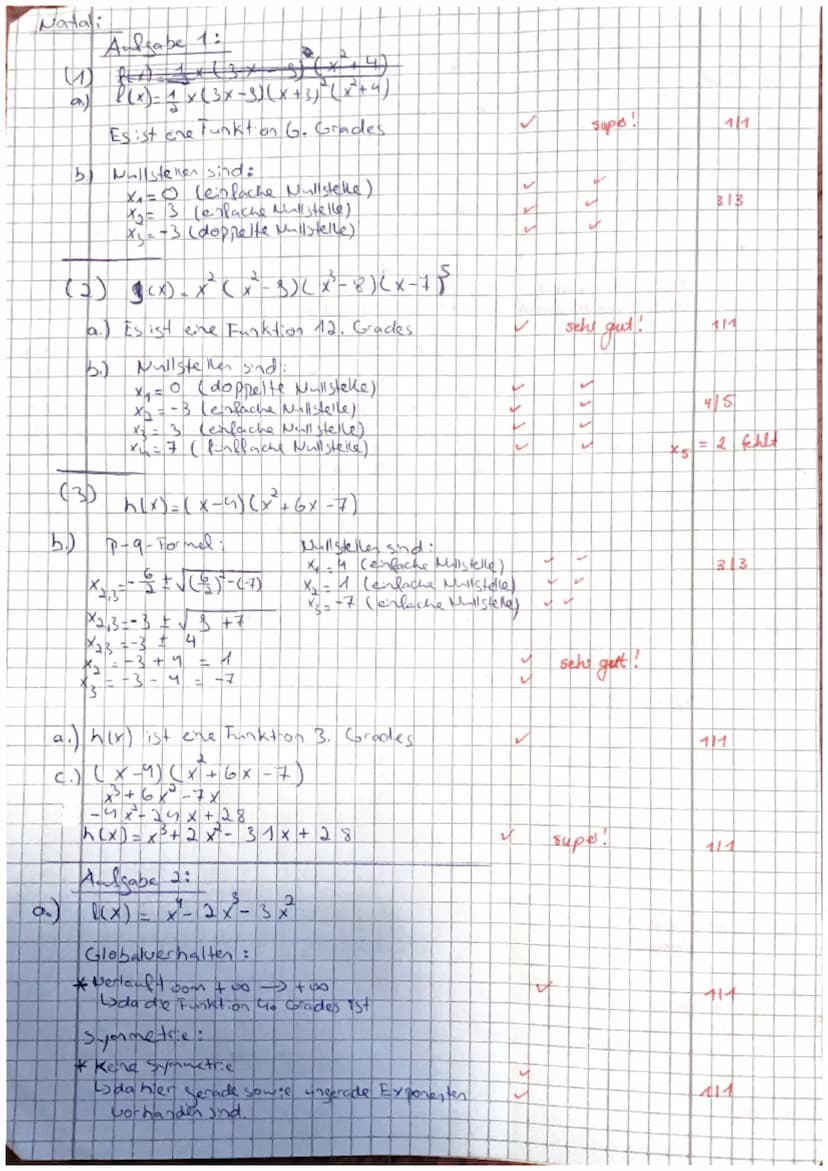 Natali
Aufgabe 1:
(1) f(x) = 1/2 x (3x - 9)² (x² + 4)
a.) f(x) = 1/2 x (3x - 9)(x + 3)² (x² + 4)
Es ist eine Funktion 6. Grades ✓ super! 1/1
b.) Nullstellen sind:
x₁ = 0 (einfache Nullstelle) ✓ ✓
x₂ = 3 (einfache Nullstelle) ✓ ✓ 3/3
x₃ = -3 (doppelte Nullstelle) ✓ ✓
(2) g(x) = x² (x² - 9)(x³ - 8)(x - 7)⁵
a.) Es ist eine Funktion 12. Grades ✓ sehr gut! 1/1
b.) Nullstellen sind:
x₁ = 0 (doppelte Nullstelle) ✓ ✓
x₂ = -3 (einfache Nullstelle) ✓ ✓ 4/5
x₃ = 3 (einfache Nullstelle) ✓ ✓
x₄ = 7 (fünffache Nullstelle) ✓ ✓ x₅ = 2 fehlt
(3) h(x) = (x - 4)(x² + 6x - 7)
b.) p-q-Formel: Nullstellen sind:
x₁ = 4 (einfache Nullstelle) ✓ ✓ 3/3
x₂,₃ = - 6/2 ± √((6/2)² - (-7)) x₂ = 1 (einfache Nullstelle) ✓ ✓
x₃ = -7 (einfache Nullstelle) ✓ ✓
x₂,₃ = -3 ± √9 + 7
x₂,₃ = -3 ± 4
x₂ = -3 + 4 = 1 ✓ sehr gut!
x₃ = -3 - 4 = -7 ✓
a.) h(x) ist eine Funktion 3. Grades ✓ 1/1
c.) (x - 4)(x² + 6x - 7)
x³ + 6x² - 7x
-4x² - 24x + 28
h(x) = x³ + 2x² - 31x + 28 ✓ super! 1/1
Aufgabe 2:
a.) f(x) = x⁴ - 2x³ - 3x²
Globalverhalten:
* Verläuft vom +∞ → +∞ ✓
↳ da die Funktion 4. Grades ist 1/1
Symmetrie:
* Keine Symmetrie ✓
↳ da hier gerade sowie ungerade Exponenten ✓ 1/1
vorhanden sind.